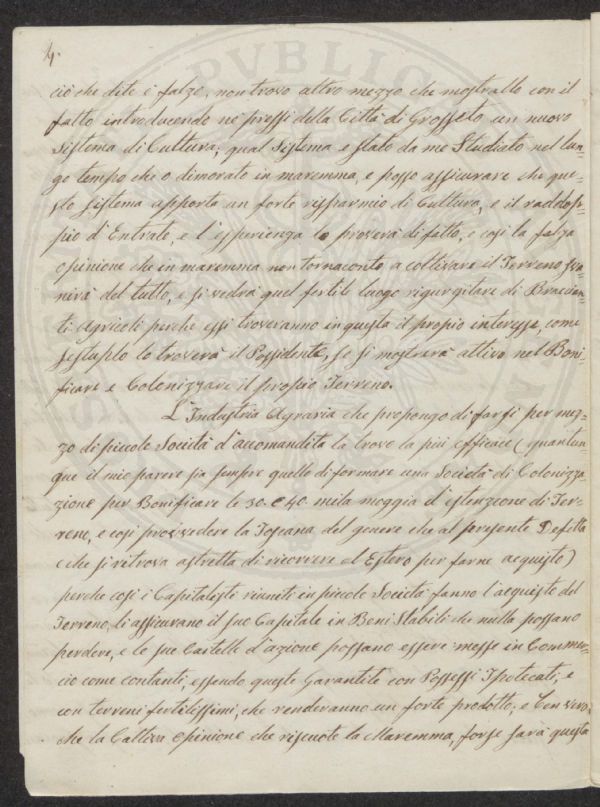 4.
ciò che dite è falzo, non trovo altro mezzo che mostrallo con il
fatto introducendo ne pressi della Città di Grosseto un nuovo
Sistema di Cultura; qual Sistema e stato da me Studiato nel lun-
go tempo che o dimorato in maremma, e posso assicurare che que-
sto sistema apporta un forte risparmio di Cultura, e il raddop-
pio d'Entrate, e l'esperienza lo proverà di fatto, e così la falza
opinione che in maremma non tornaconto a coltivare il Terreno sva-
nirà del tutto, e si vedrà quel fertile luogo rigurgitare di Braccian-
ti Agricoli perche essi troveranno in questa il propio interesse, come
sestuplo lo troverà il Possidente, se si mostrerà attivo nel Boni-
ficare e Colonizzare il propio Terreno.
L'Industria Agraria che propongo di farsi per mez-
zo di piccole Società d'accomandita la trovo la più efficace (quantun-
que il mio parere sia sempre quello di formare una Società di Colonizza-
zione per Bonificare le 30. e 40 mila moggia d'estenzione di Ter-
reno, e così provvedere la Toscana del genere che al presente Difetta
(che si ritrova astretta di ricorrere al Estero per farne acquisto)
perche così i Capitalisti riuniti in piccole Società fanno l'acquisto del
Terreno, li assicurano il suo Capitale in Beni Stabili che nulla possano
perdere, e le sue Cartelle d'azione possano essere messe in Commer-
cio come contante, essendo queste Garantite con Possessi Ipotecati, e
con terreni fertilissimi, che renderanno un forte prodotto; e ben vero
che la Cattiva opinione che riscuote la Maremma, forse sarà questa